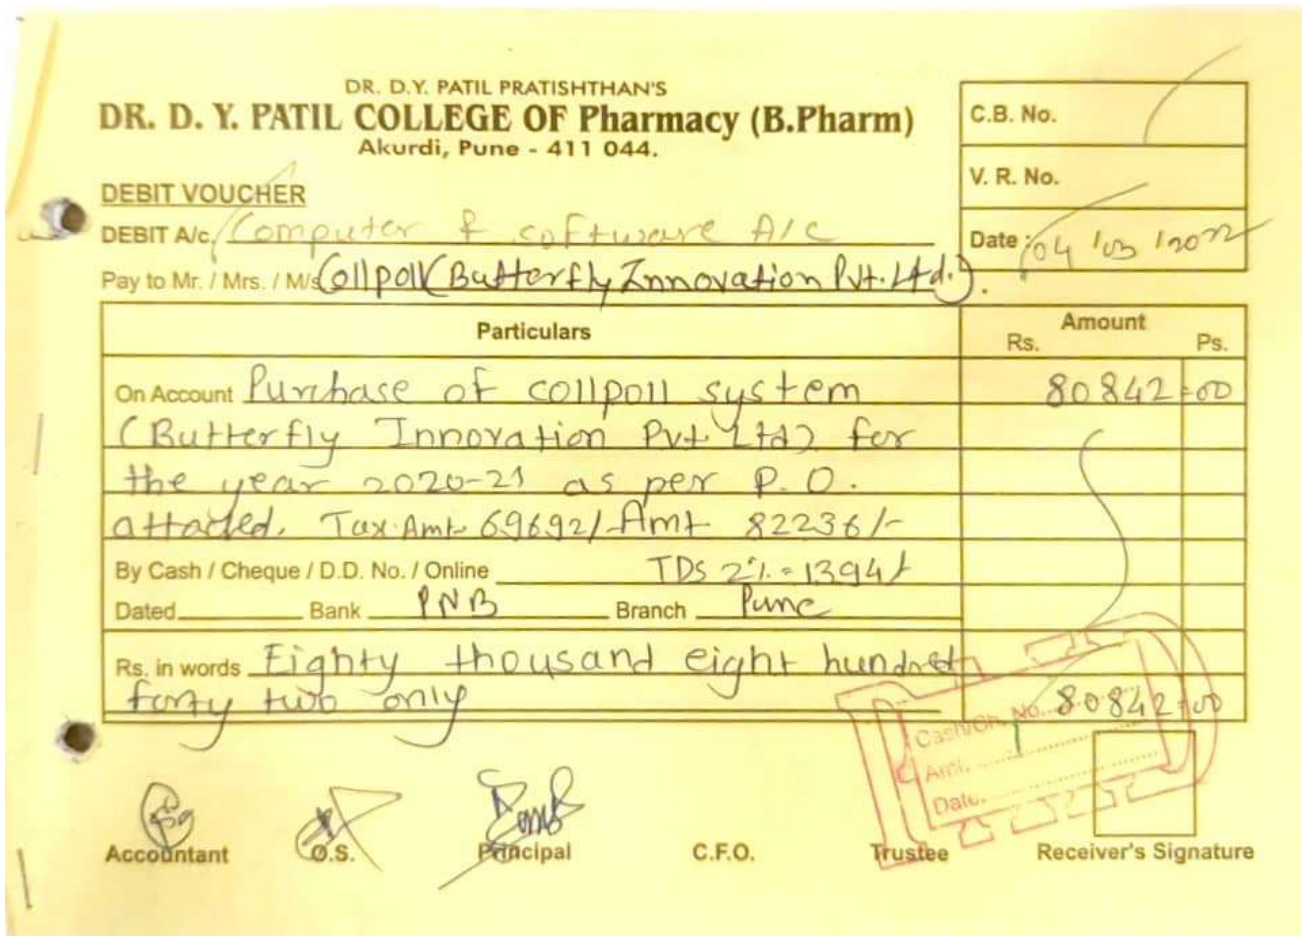 DR. D.Y. PATIL PRATISHTHAN'S
DR. D. Y. PATIL COLLEGE OF Pharmacy (B.Pharm)
Akurdi, Pune - 411 044.
C.B. No.
V. R. No.
Date : 04/03/2022
DEBIT VOUCHER
DEBIT A/c. Computer & software A/c
Pay to Mr. / Mrs. / M/s Collpoll (Butterfly Innovation Pvt. Ltd.).
Particulars
Amount
Rs. Ps.
On Account Purchase of collpoll system 80842=00
(Butterfly Innovation Pvt Ltd) for
the year 2020-21 as per P.O.
attached. Tax Amt 69692/- Amt 82236/-
By Cash / Cheque / D.D. No. / Online TDS 2%=1394/-
Dated Bank PNB Branch Pune
Rs. in words Eighty thousand eight hundred
forty two only 80842=00
Cash/Ch. No.
Amt.
Date.
Accountant O.S. Principal C.F.O. Trustee Receiver's Signature